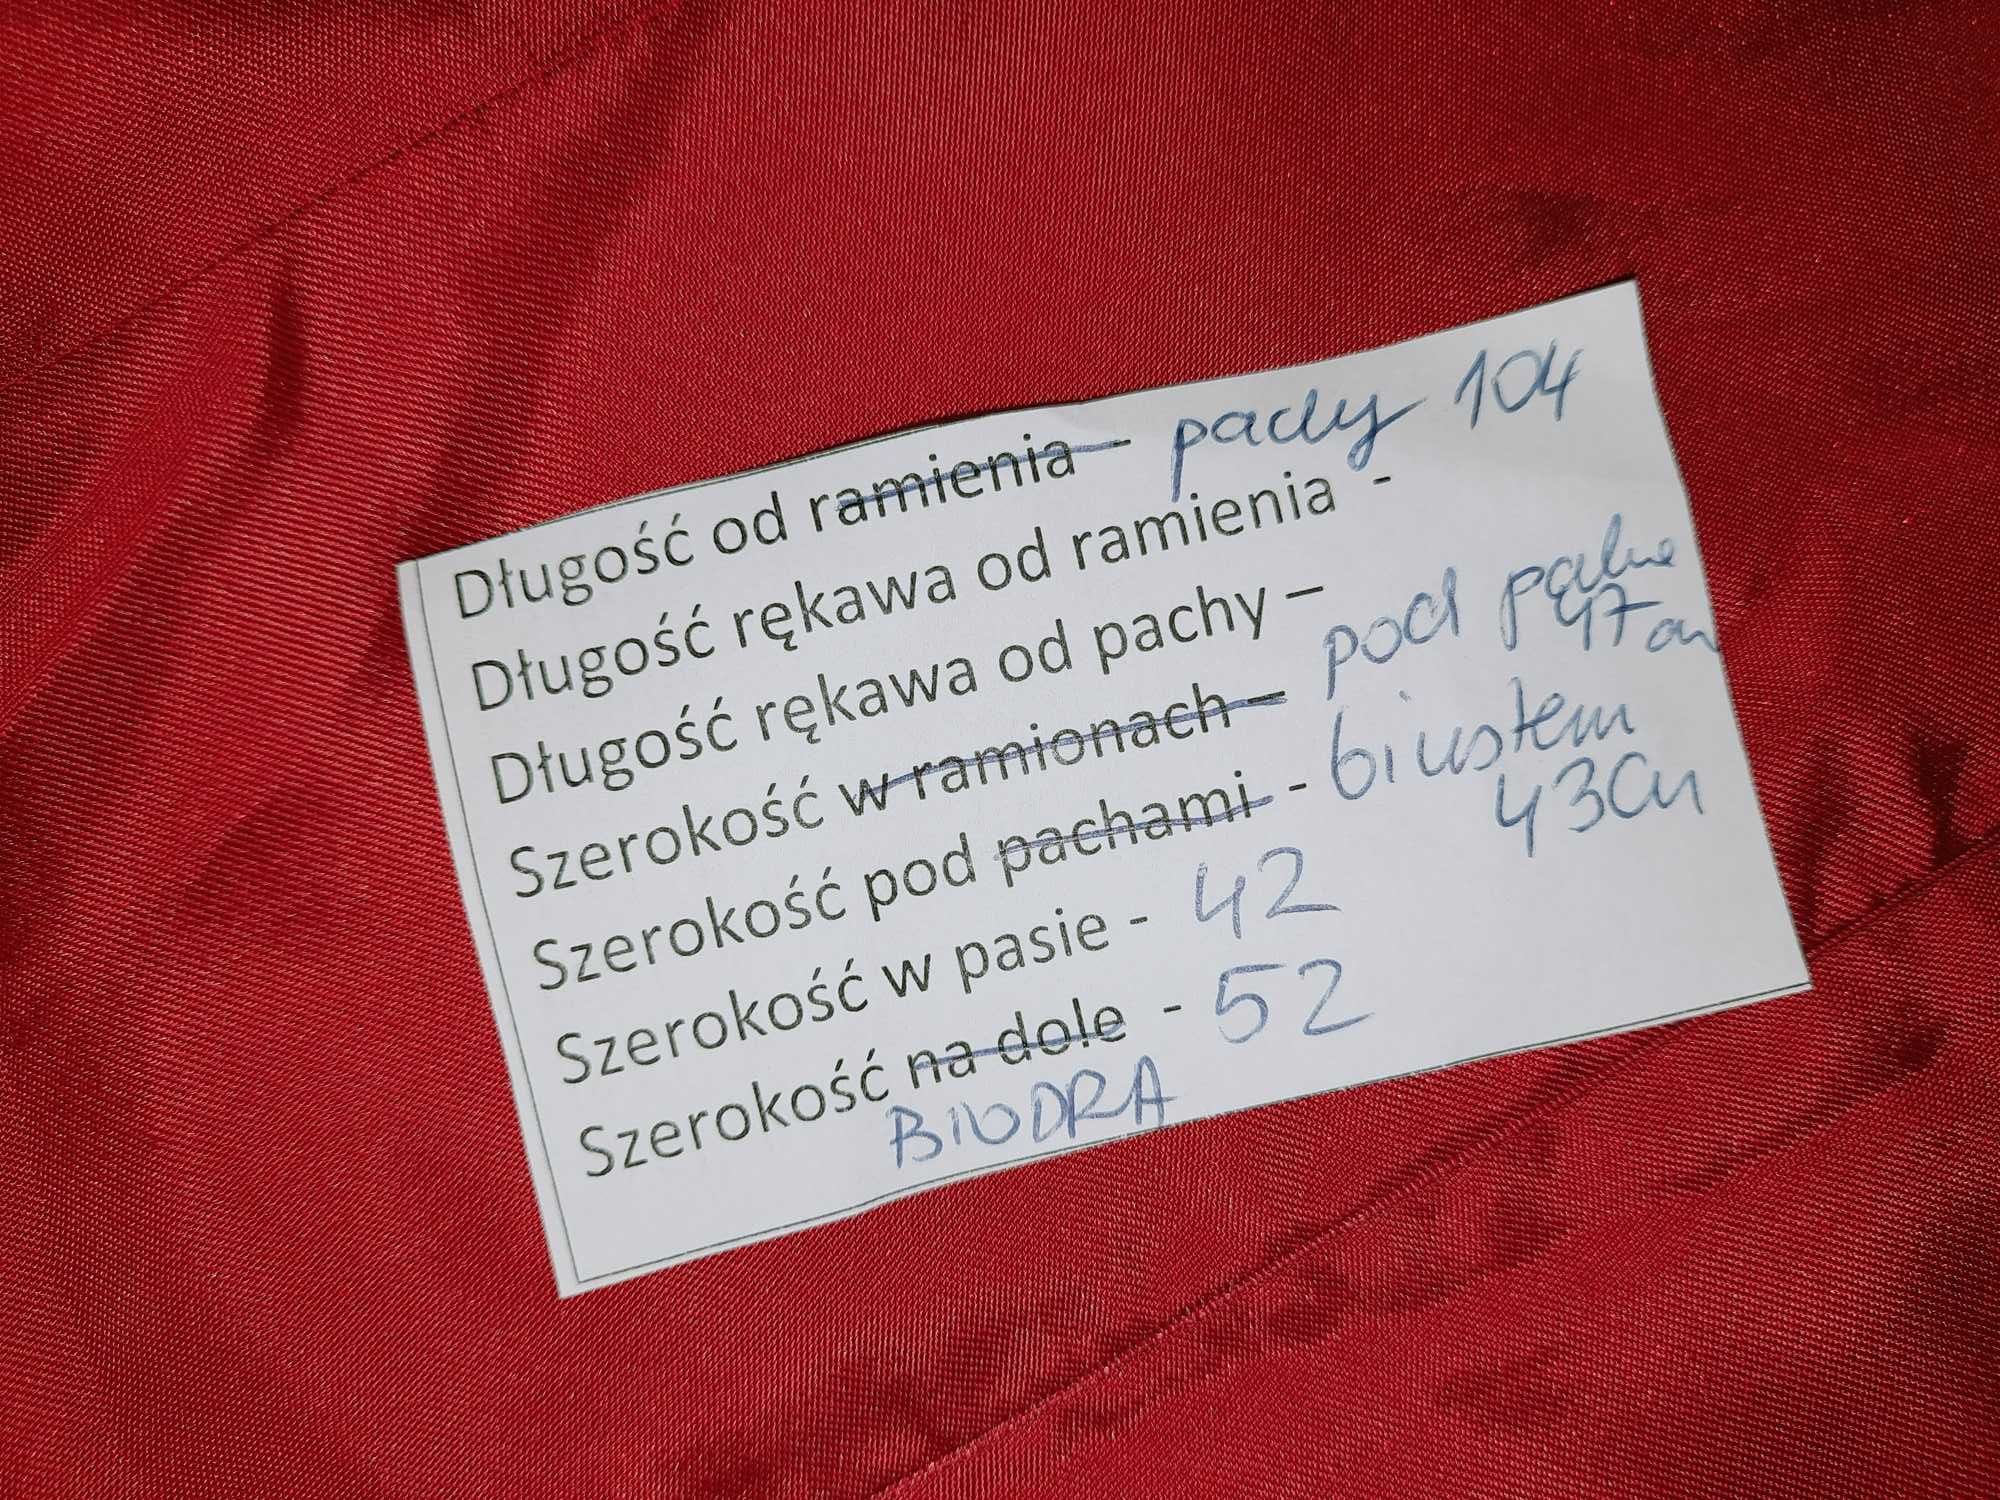 Długość od ramienia - pachy 104
Długość rękawa od ramienia -
Długość rękawa od pachy –
Szerokość w ramionach – pod pachą 47 cm
Szerokość pod pachami - biustem 43 cm
Szerokość w pasie - 42
Szerokość na dole - 52
BIODRA